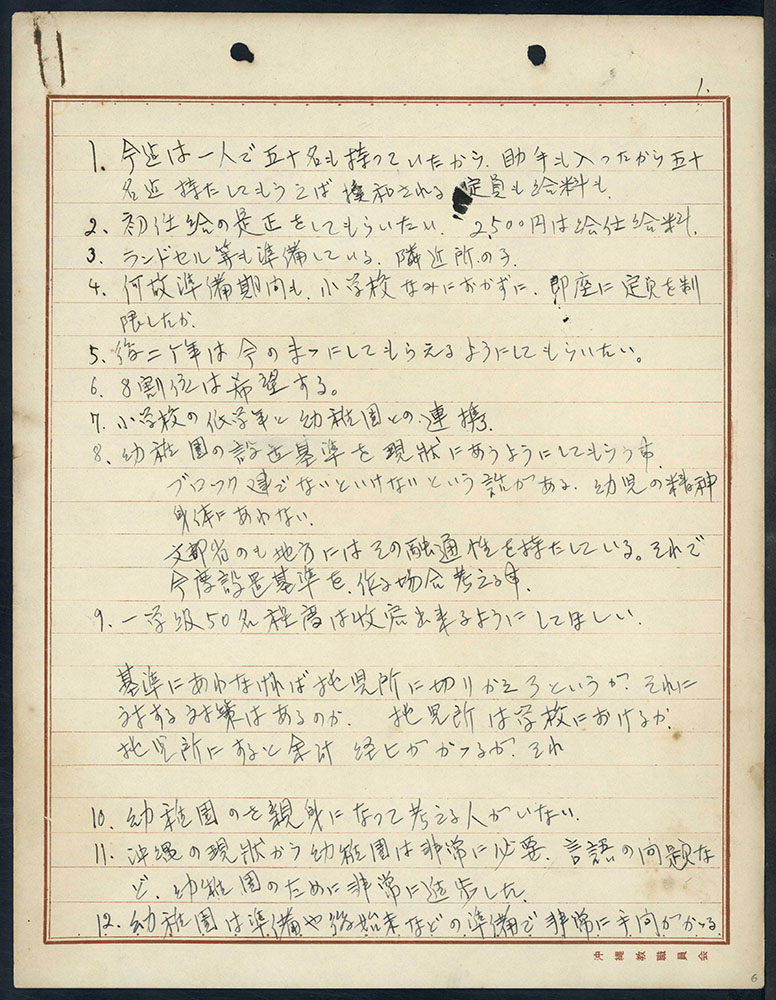 1.
1. 今迄は一人で五十名も持っていたから、助手も入ったから五十
名迄持たしてもらえば緩和される 定員も給料も、
2. 初任給の是正をしてもらいたい、 2,500円は給仕給料、
3. ランドセル等も準備している、隣近所の子、
4. 何故準備期間も、小学校なみにおかずに、即座に定員を制
限したか、
5. 後二ヶ年は今のまゝにしてもらえるようにしてもらいたい。
6. 8割位は希望する。
7. 小学校の低学年と幼稚園との連携、
8. 幼稚園の設置基準を現状にあうようにしてもらう事、
ブロック建でないといけないという話がある、幼児の精神
身体にあわない、
文部省のも地方にはその融通性を持たしている。それで
今度設置基準を、作る場合考える事、
9. 一学級50名程度は収容出来るようにしてほしい、
基準にあわなければ託児所に切りかえろというが、それに
対する対策はあるのか、 託児所は学校におけるか、
託児所にすると余計 経ヒがかゝるが、それ
10. 幼稚園のを親身になって考える人がいない、
11. 沖縄の現状から幼稚園は非常に必要、言語の問題な
ど、幼稚園のために非常に進歩した、
12. 幼稚園は準備や後始末などの準備で非常に手間がかゝる、
沖縄教職員会
6